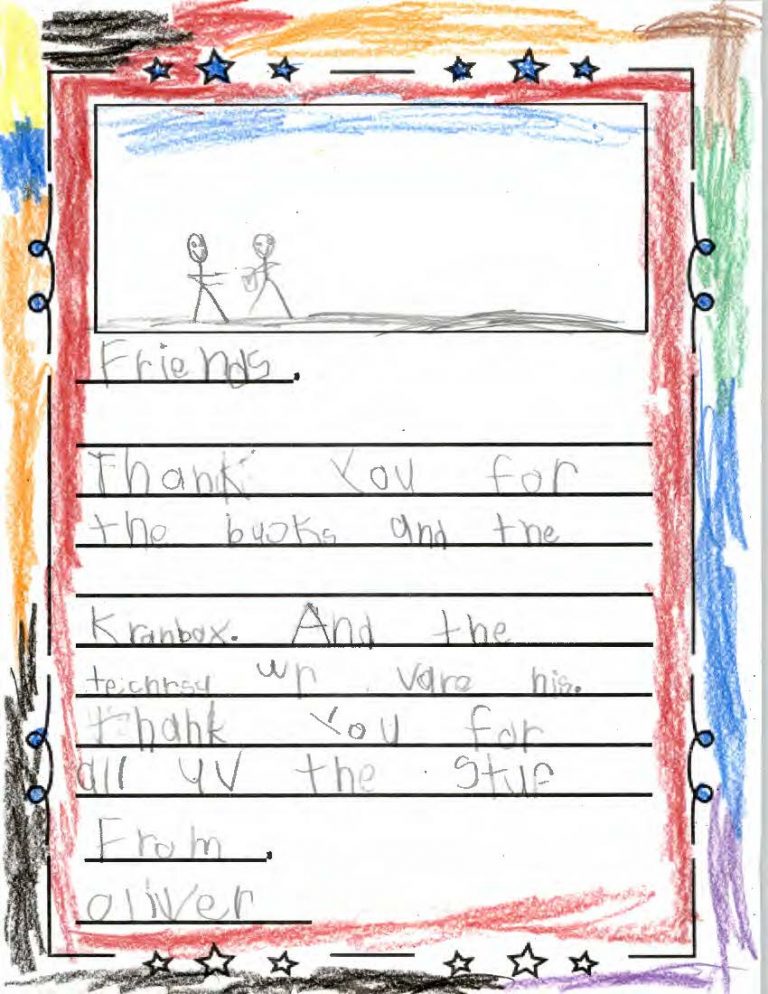 Friends.
Thank You for
the buoks and the
Kranbox. And the
techrsy wr vare nis.
thank You for
all uv the stuf
From,
oliver